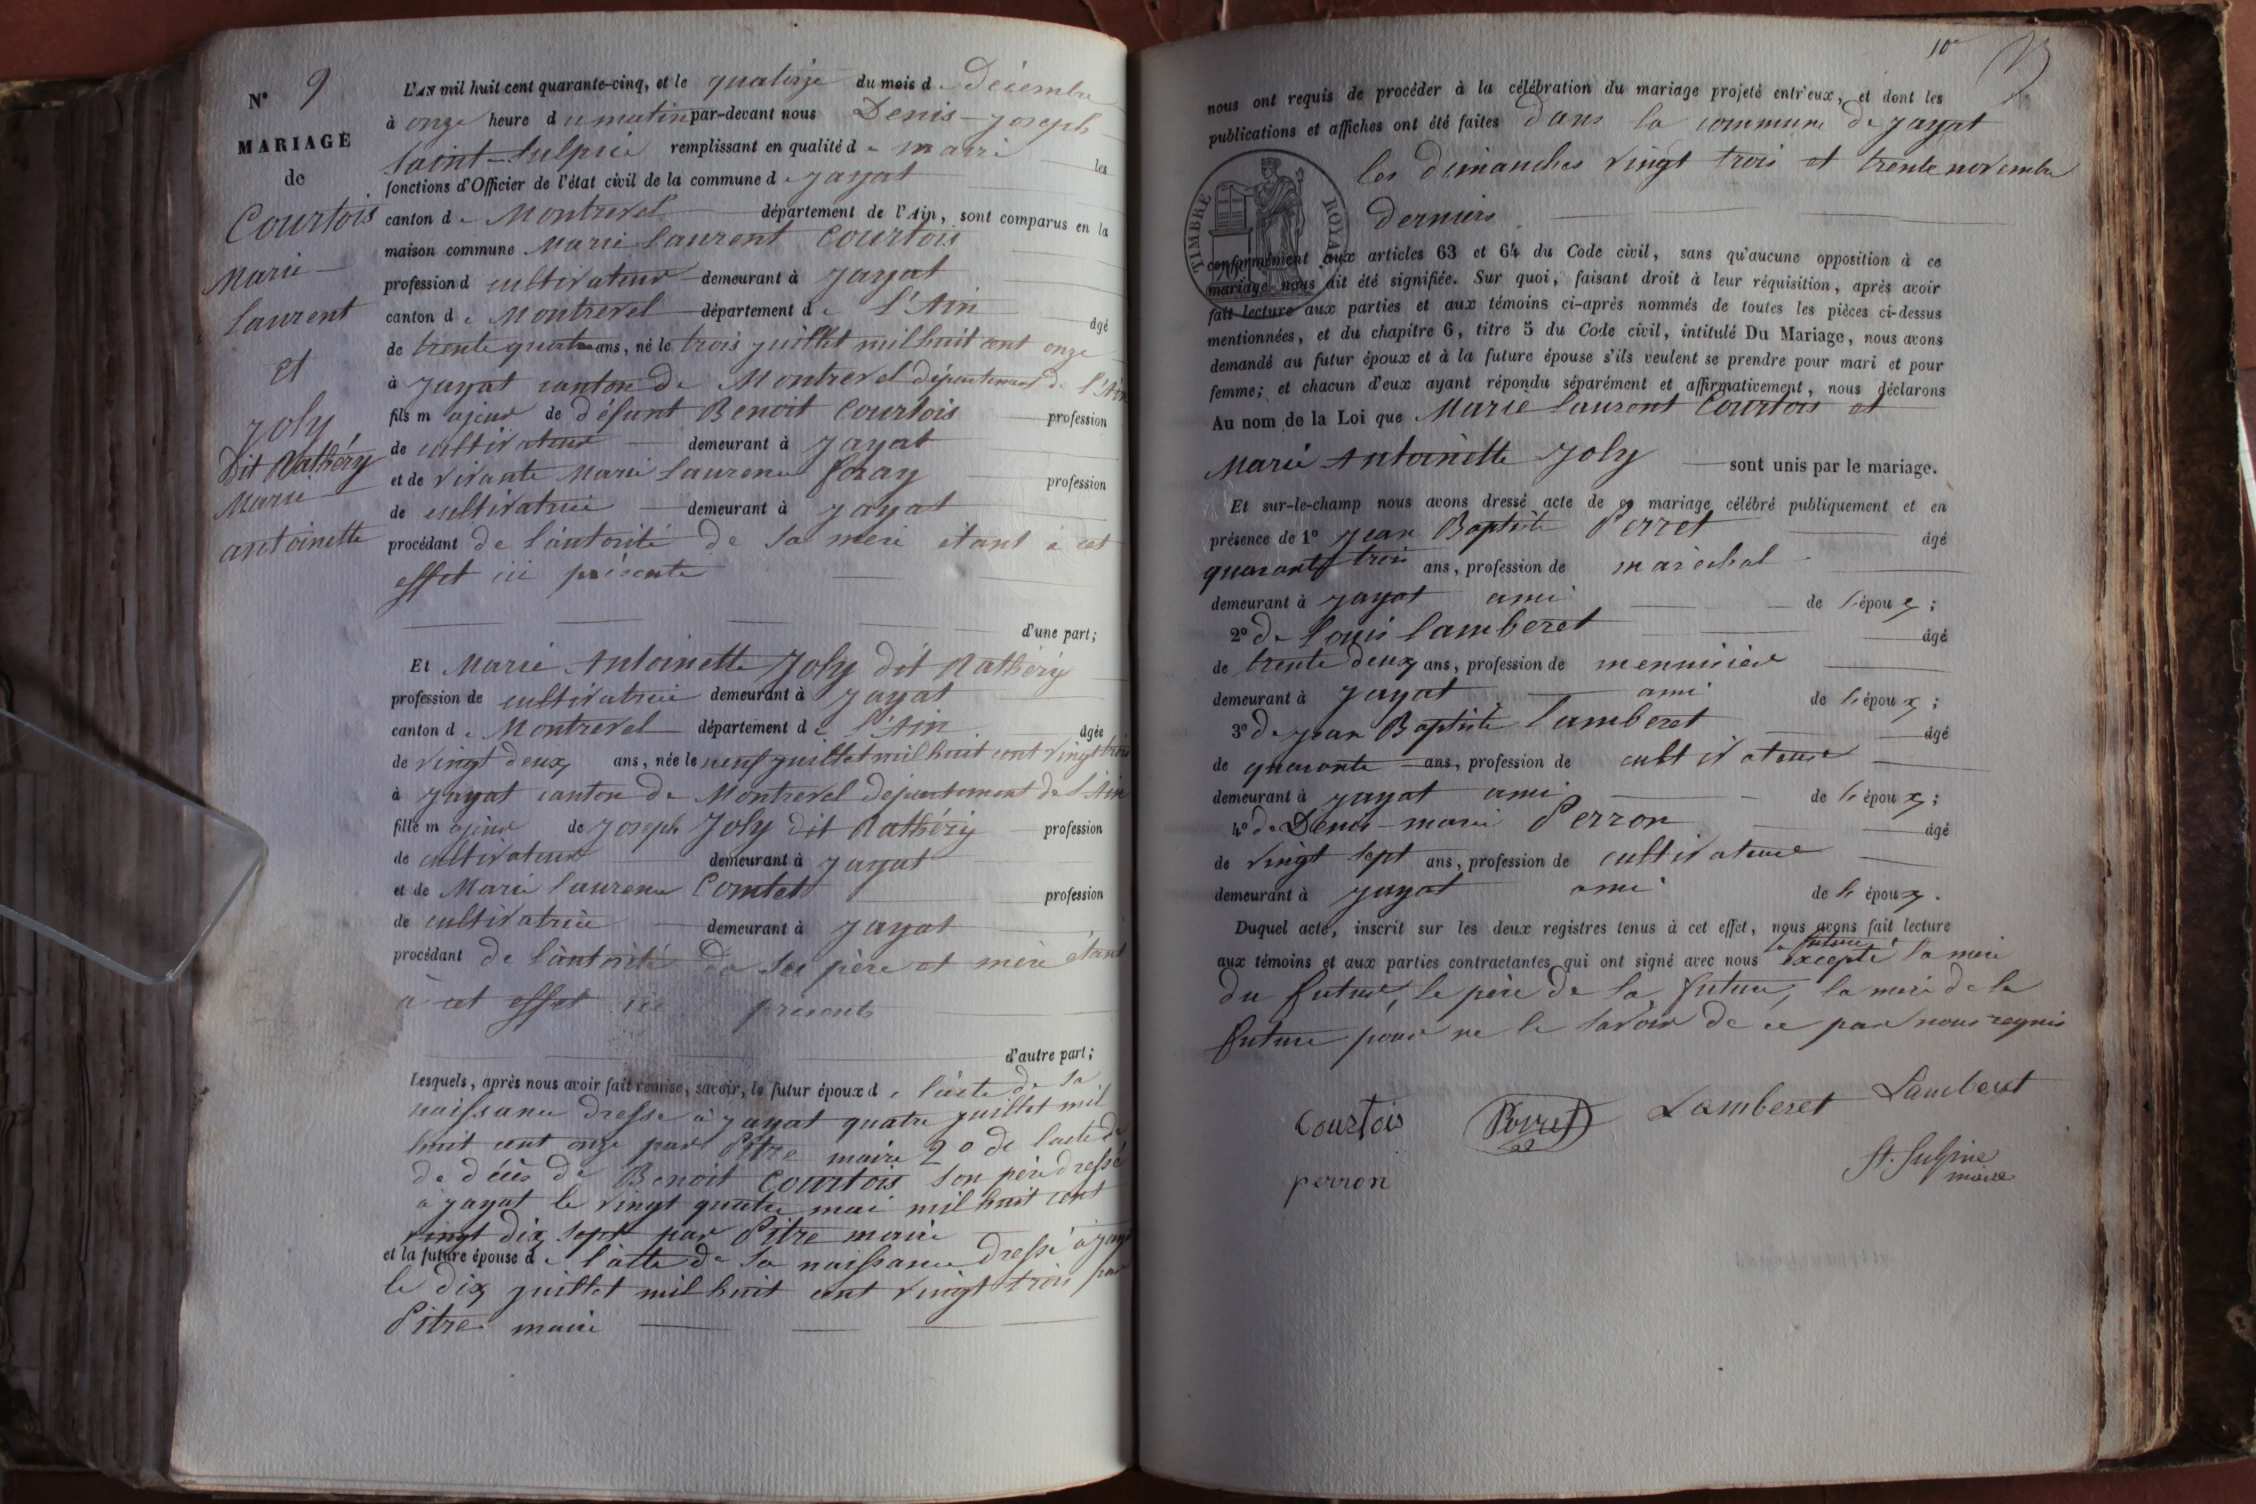 N° 9
MARIAGE
de
Courtois
Marie
Laurent
et
Joly
Dit Rathéry
Marie
antoinette
L'AN mil huit cent quarante-cinq, et le quatorze du mois de Décembre
à onze heure du matin par-devant nous Denis-Joseph
Saint-Sulpice remplissant en qualité de maire les
fonctions d'Officier de l'état civil de la commune de Jayat
canton de Montrevel département de l'Ain, sont comparus en la
maison commune Marie Laurent Courtois
profession d cultivateur demeurant à Jayat
canton de Montrevel département de l'Ain âgé
de trente quatre ans, né le trois juillet mil huit cent onze
à Jayat canton de Montrevel département de l'Ain
fils majeur de défunt Benoit Courtois profession
de cultivateur demeurant à Jayat
et de vivante Marie Laurence foray profession
de cultivatrice demeurant à Jayat
procédant de l'autorité de sa mère étant à cet
effet ici présente
d'une part;
Et Marie Antoinette Joly dit Rathéry
profession de cultivatrice demeurant à Jayat
canton de Montrevel département de l'Ain âgée
de vingt deux ans, née le neuf juillet mil huit cent vingt trois
à Jayat canton de Montrevel département de l'Ain
fille majeur de Joseph Joly dit Rathéry profession
de cultivateur demeurant à Jayat
et de Marie Laurence Comtet profession
de cultivatrice demeurant à Jayat
procédant de l'autorité de ses père et mère étant
à cet effet ici présents
d'autre part;
Lesquels, après nous avoir fait remise, savoir, le futur époux de l'acte de sa
naissance dressé à Jayat quatre juillet mil
huit cent onze par Pitre maire 2° de l'acte de
de décès de Benoit Courtois son père dressé
à Jayat le vingt quatre mai mil huit cent
vingt dix sept par Pitre maire
et la future épouse de l'acte de sa naissance dressé à Jayat
le dix juillet mil huit cent vingt trois par
Pitre maire
10e
nous ont requis de procéder à la célébration du mariage projeté entr'eux, et dont les
publications et affiches ont été faites dans la commune de Jayat
les dimanches vingt trois et trente novembre
derniers
TIMBRE ROYAL
conformément aux articles 63 et 64 du Code civil, sans qu'aucune opposition à ce
mariage nous ait été signifiée. Sur quoi, faisant droit à leur réquisition, après avoir
fait lecture aux parties et aux témoins ci-après nommés de toutes les pièces ci-dessus
mentionnées, et du chapitre 6, titre 5 du Code civil, intitulé Du Mariage, nous avons
demandé au futur époux et à la future épouse s'ils veulent se prendre pour mari et pour
femme; et chacun d'eux ayant répondu séparément et affirmativement, nous déclarons
Au nom de la Loi que Marie Laurent Courtois et
Marie Antoinette Joly sont unis par le mariage.
Et sur-le-champ nous avons dressé acte de ce mariage célébré publiquement et en
présence de 1° Jean Baptiste Perret âgé
quarante trois ans, profession de maréchal
demeurant à Jayat ami de l'époux;
2° de Louis Lamberet âgé
de trente deux ans, profession de menuisier
demeurant à Jayat ami de l'époux;
3° de Jean Baptiste Lamberet âgé
de quarante ans, profession de cultivateur
demeurant à Jayat ami de l'époux;
4° de Denis-marie Perron âgé
de vingt sept ans, profession de cultivateur
demeurant à Jayat ami de l'époux.
Duquel acte, inscrit sur les deux registres tenus à cet effet, nous avons fait lecture
la future
aux témoins et aux parties contractantes qui ont signé avec nous excepté la mère
du futur, le père de la future, la mère de la
future pour ne le savoir de ce par nous requis
Courtois Perret Lamberet Lamberet
perron St. Sulpice
maire